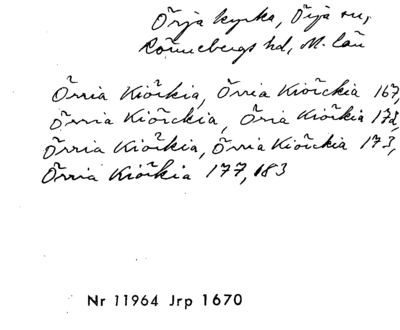 Örja kyrka, Örja sn,
Rönnebergs hd, M. län
Örria Kiörkia, Örria Kiörckia 167,
Örria Kiörckia, Öria Kiörkia 172,
Örria Kiörkia, Örria Kiörckia 173,
Örria Kiörkia 177, 183
Nr 11964 Jrp 1670